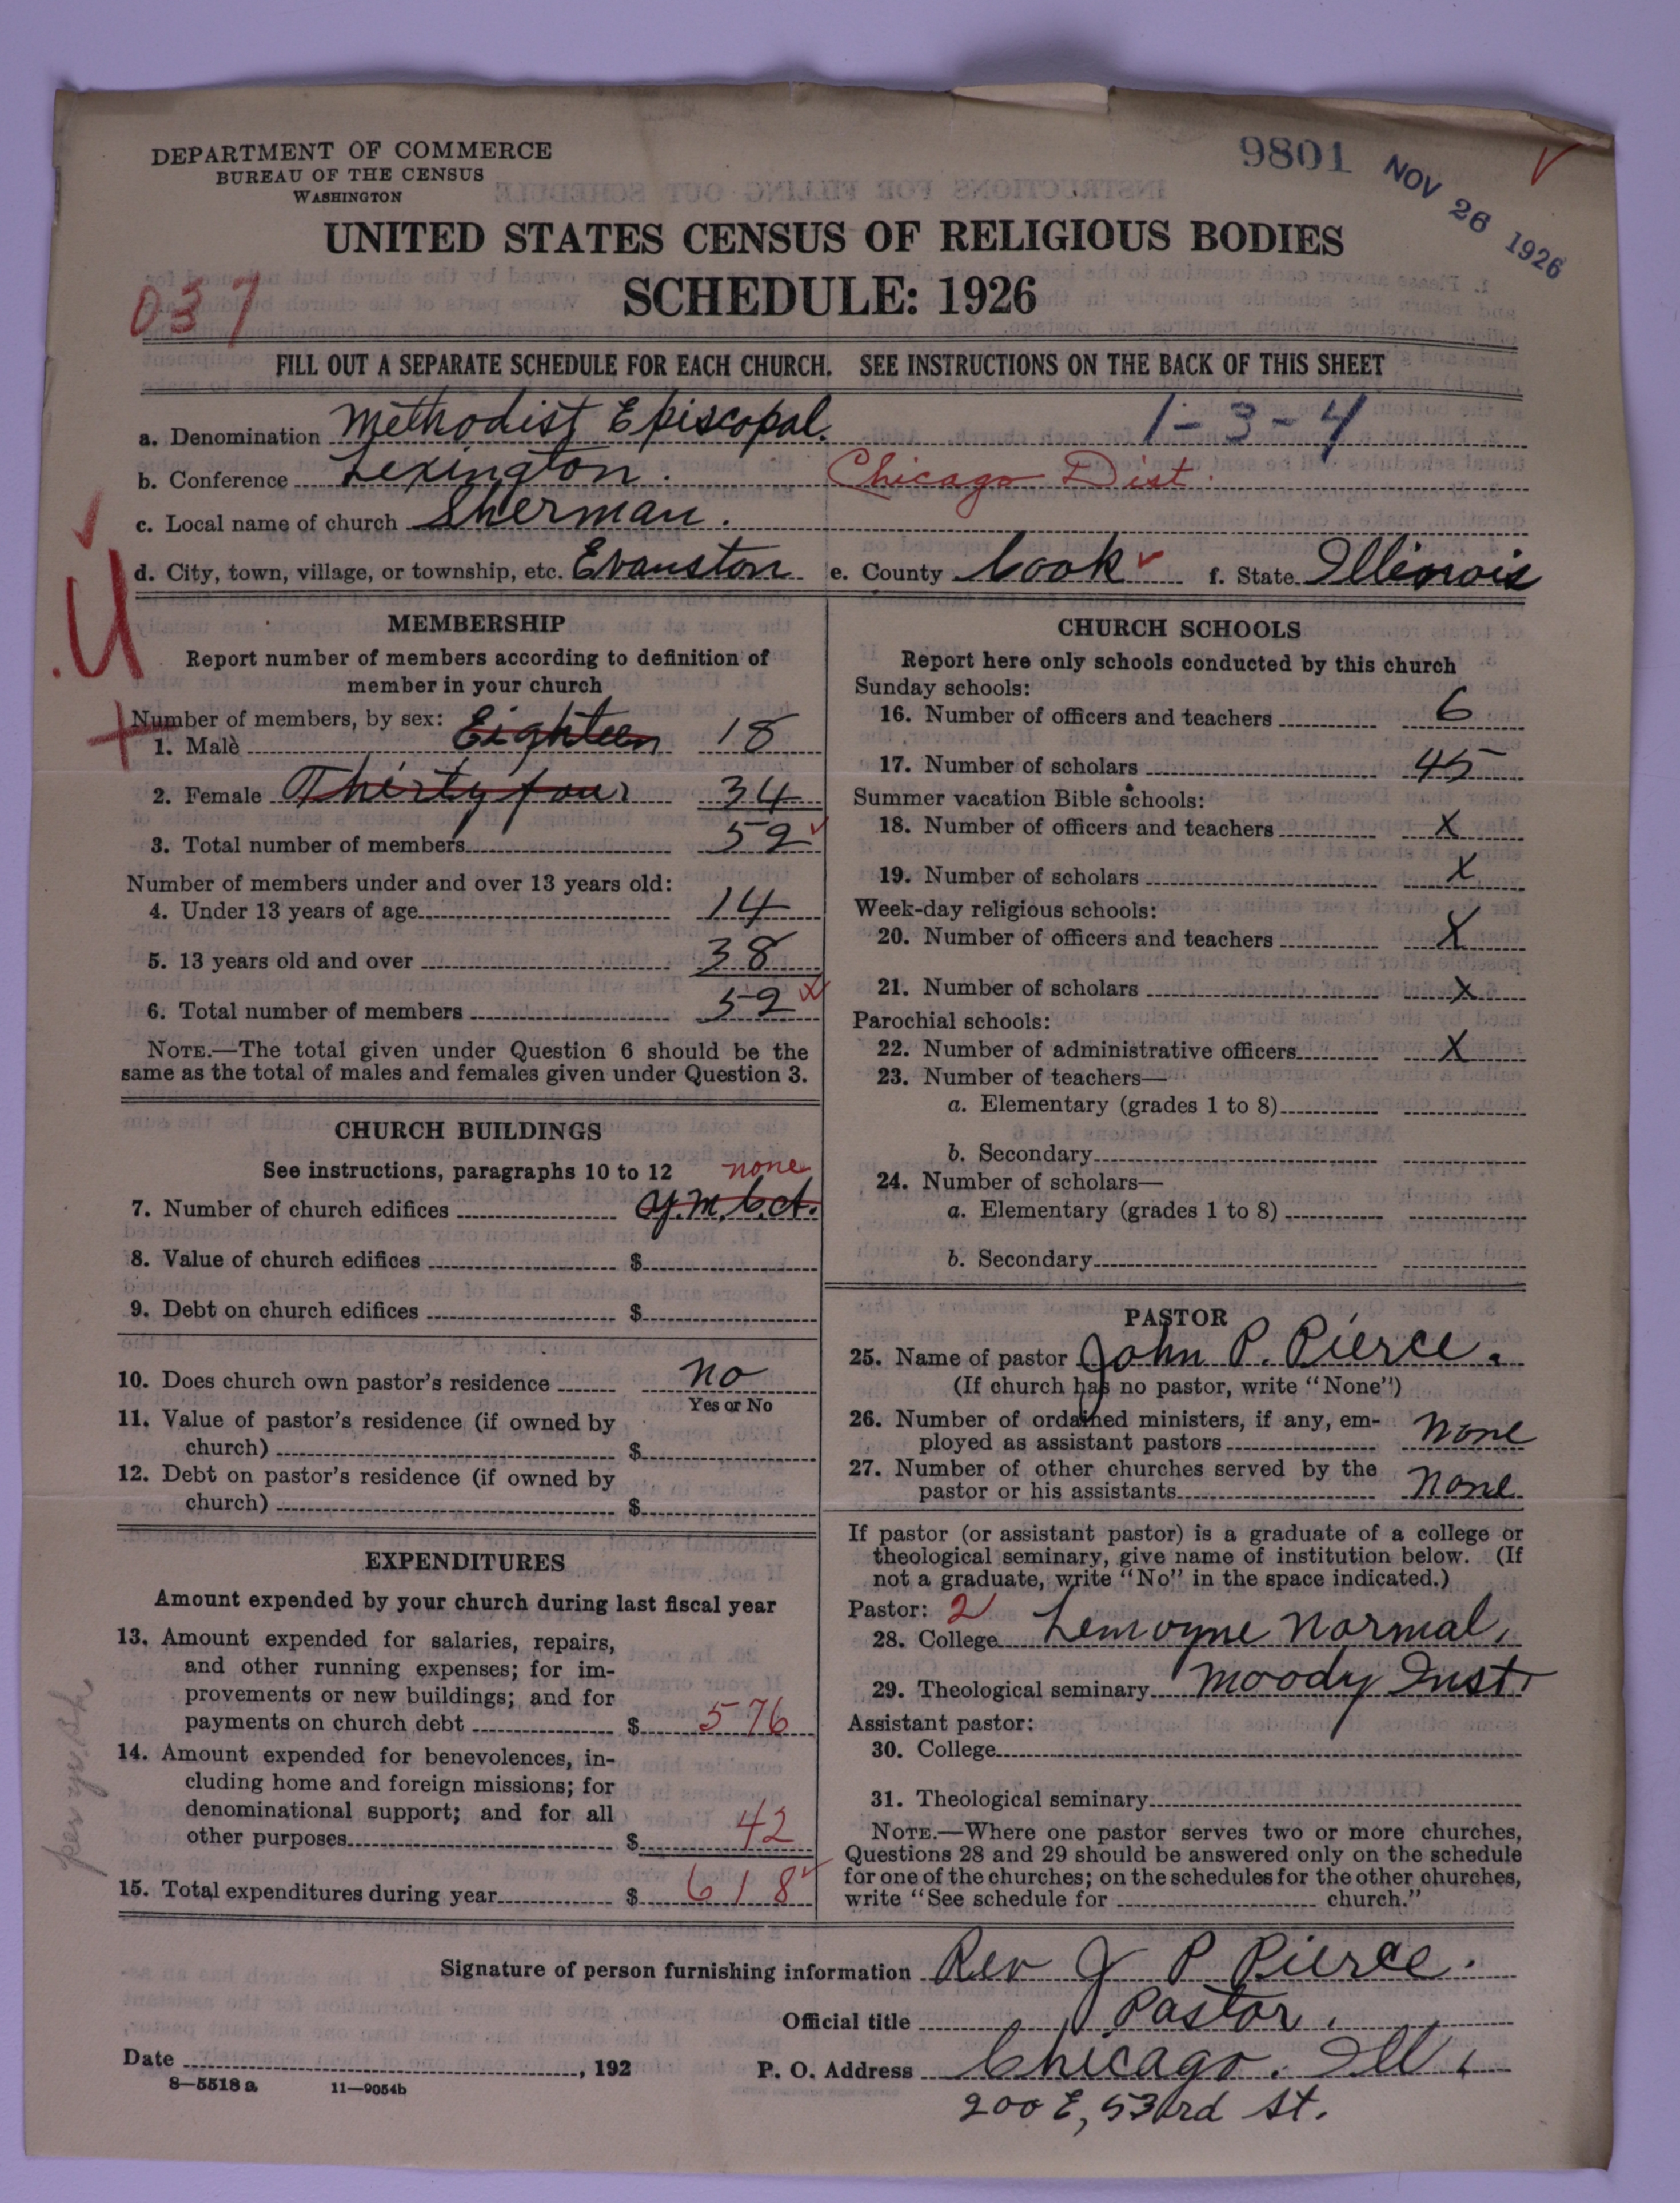 DEPARTMENT OF COMMERCE
BUREAU OF THE CENSUS
WASHINGTON
9801 NOV 26 1926
UNITED STATES CENSUS OF RELIGIOUS BODIES
SCHEDULE: 1926
037
FILL OUT A SEPARATE SCHEDULE FOR EACH CHURCH. SEE INSTRUCTIONS ON THE BACK OF THIS SHEET
a. Denomination Methodist Episcopal. 1-3-4
b. Conference Lexington. Chicago Dist.
c. Local name of church Sherman.
d. City, town, village, or township, etc. Evanston e. County Cook f. State Illinois
U
MEMBERSHIP
Report number of members according to definition of
member in your church
Number of members, by sex:
1. Male Eighteen 18
2. Female Thirty four 34
3. Total number of members 52
Number of members under and over 13 years old:
4. Under 13 years of age 14
5. 13 years old and over 38
6. Total number of members 52
NOTE.—The total given under Question 6 should be the
same as the total of males and females given under Question 3.
CHURCH BUILDINGS
See instructions, paragraphs 10 to 12 none
7. Number of church edifices Y.M.C.A.
8. Value of church edifices $
9. Debt on church edifices $
10. Does church own pastor's residence no
Yes or No
11. Value of pastor's residence (if owned by
church) $
12. Debt on pastor's residence (if owned by
church) $
EXPENDITURES
Amount expended by your church during last fiscal year
13. Amount expended for salaries, repairs,
and other running expenses; for im-
provements or new buildings; and for
payments on church debt $ 576
14. Amount expended for benevolences, in-
cluding home and foreign missions; for
denominational support; and for all
other purposes $ 42
15. Total expenditures during year $ 618
per yr. bk
CHURCH SCHOOLS
Report here only schools conducted by this church
Sunday schools:
16. Number of officers and teachers 6
17. Number of scholars 45
Summer vacation Bible schools:
18. Number of officers and teachers X
19. Number of scholars X
Week-day religious schools:
20. Number of officers and teachers X
21. Number of scholars X
Parochial schools:
22. Number of administrative officers X
23. Number of teachers—
a. Elementary (grades 1 to 8)
b. Secondary
24. Number of scholars—
a. Elementary (grades 1 to 8)
b. Secondary
PASTOR
25. Name of pastor John P. Pierce.
(If church has no pastor, write "None")
26. Number of ordained ministers, if any, em-
ployed as assistant pastors none
27. Number of other churches served by the
pastor or his assistants none
If pastor (or assistant pastor) is a graduate of a college or
theological seminary, give name of institution below. (If
not a graduate, write "No" in the space indicated.)
Pastor: 2
28. College Lemoyne Normal,
29. Theological seminary Moody Inst.
Assistant pastor:
30. College
31. Theological seminary
NOTE.—Where one pastor serves two or more churches,
Questions 28 and 29 should be answered only on the schedule
for one of the churches; on the schedules for the other churches,
write "See schedule for church."
Signature of person furnishing information Rev J P Pierce.
Official title Pastor.
Date , 192 P. O. Address Chicago. Ill.
8—5518 a 11—9054b
200 E, 53rd St.